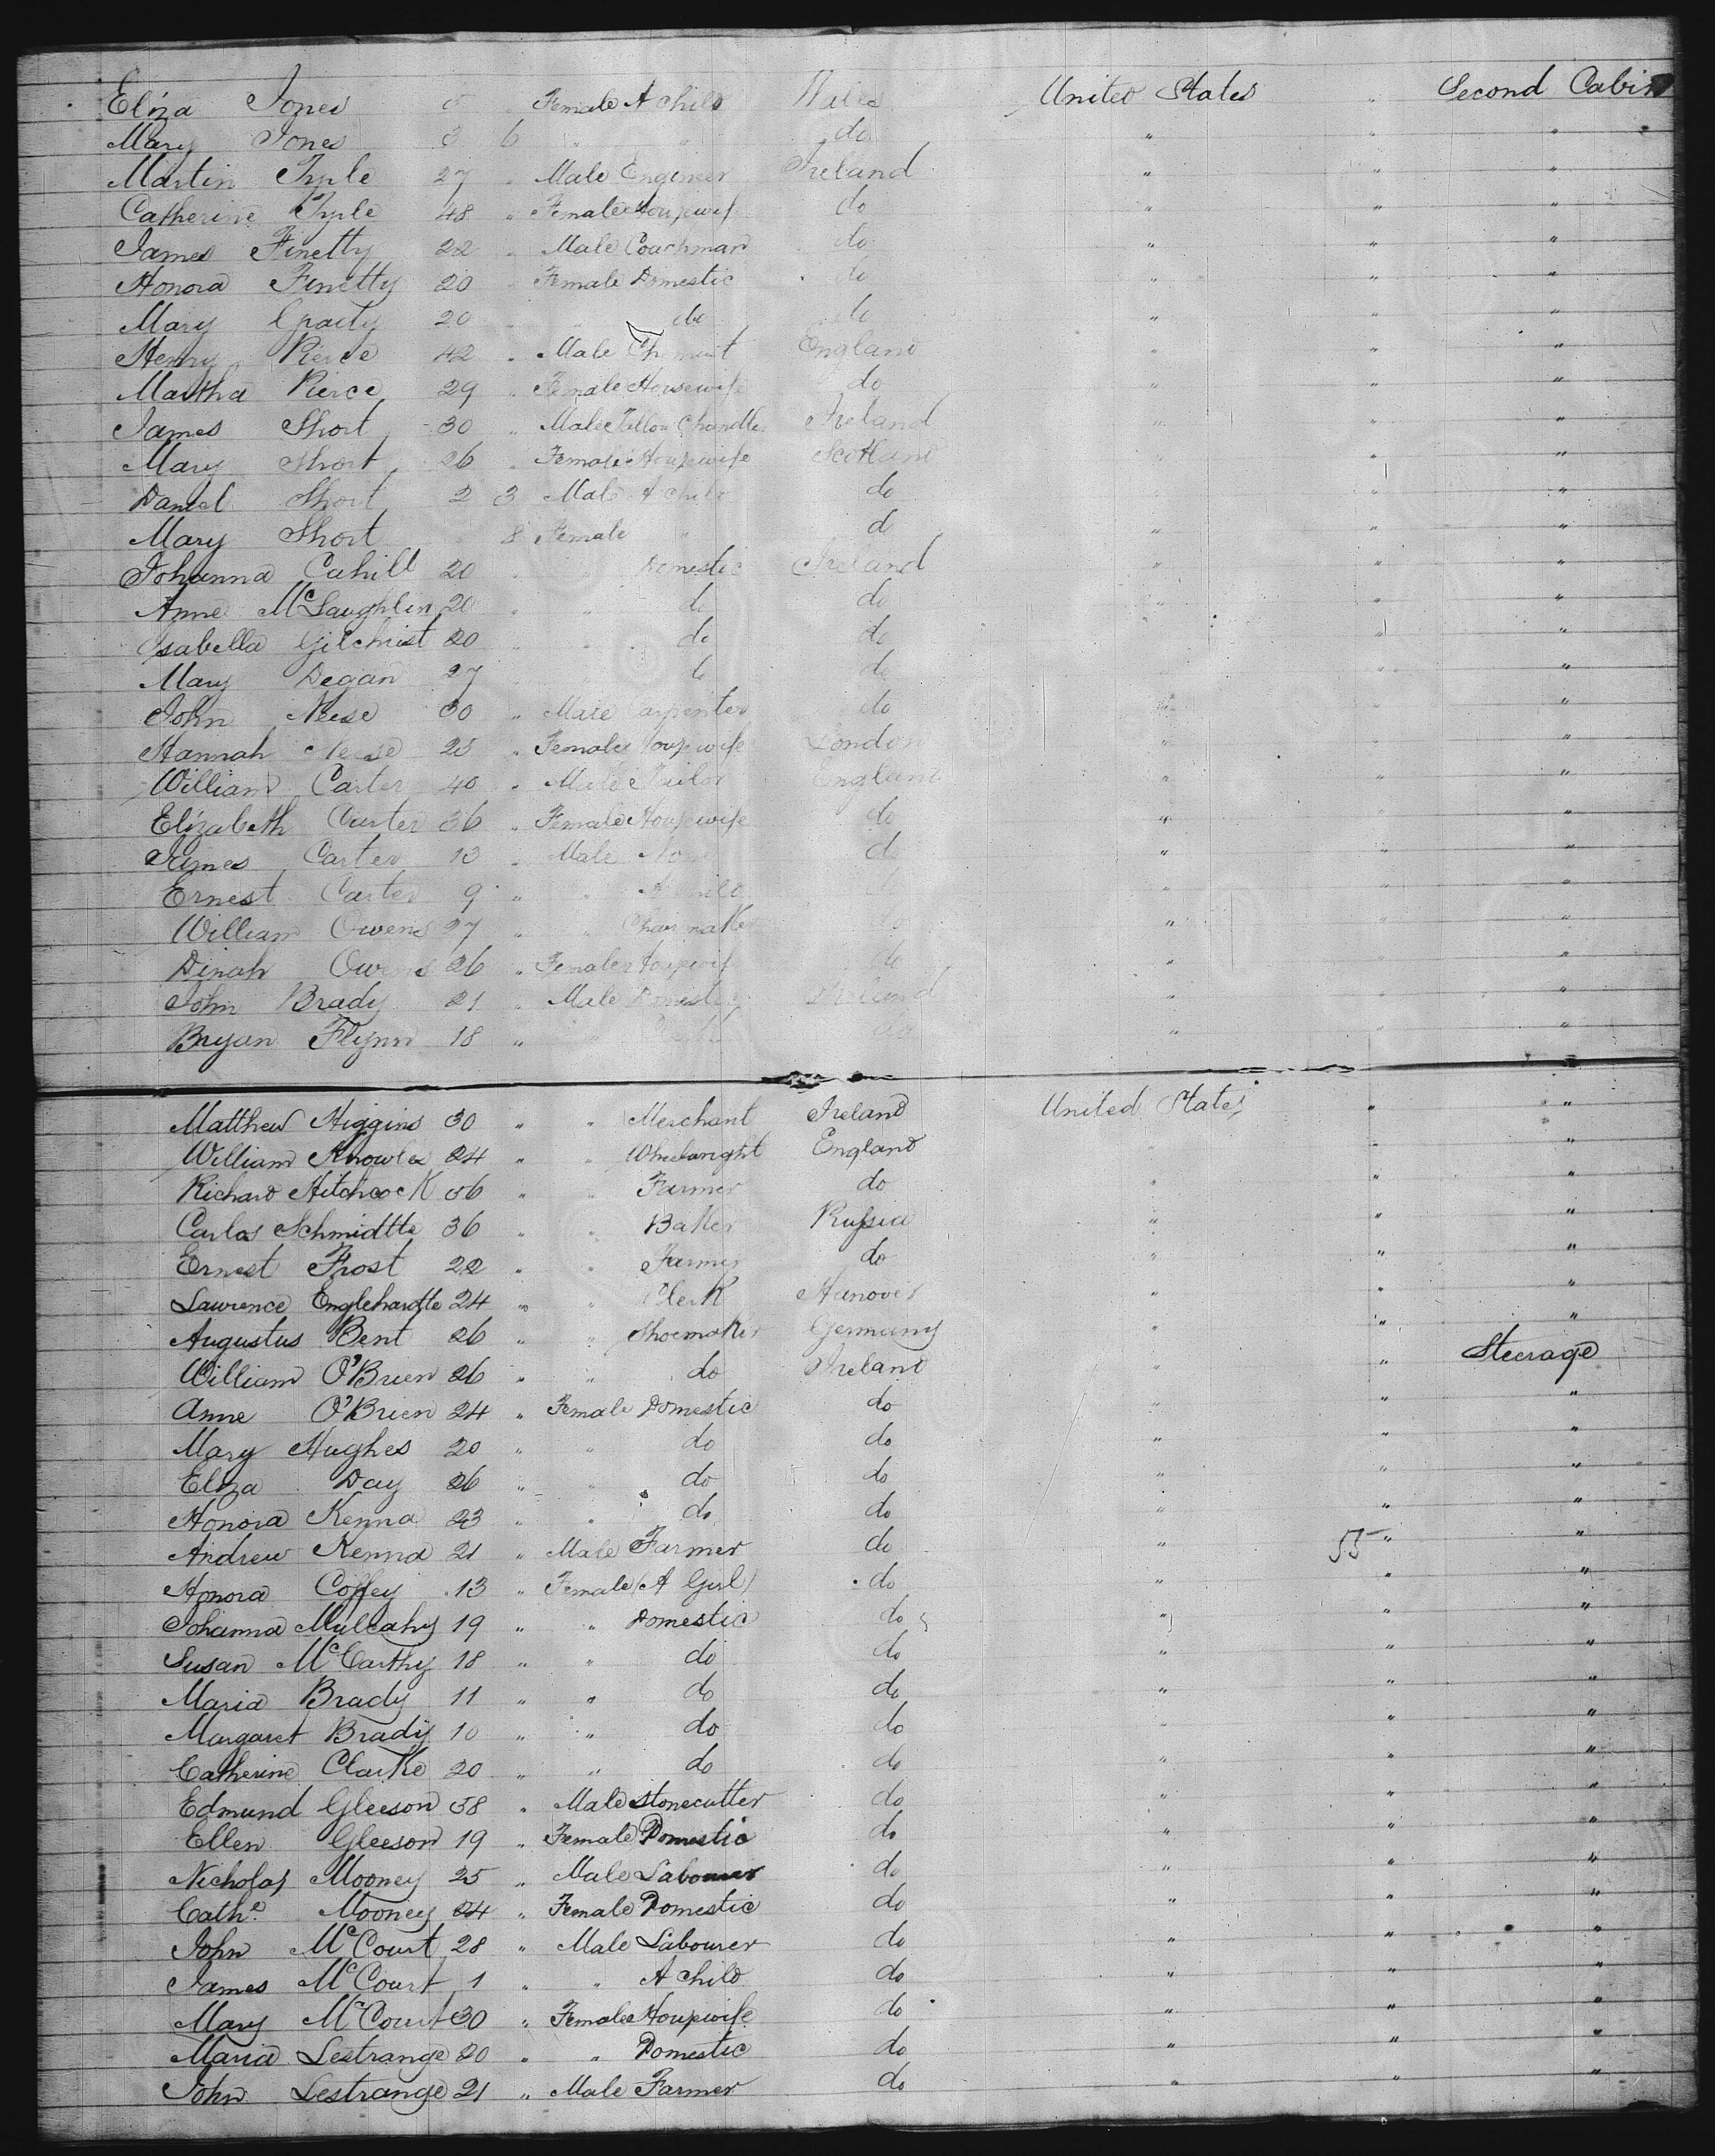 Eliza Jones 5 Female A Child Wales United States " Second Cabin
Mary Jones 3 6 " " do " " "
Martin 27 " Male Engineer Ireland " " "
Catherine 48 " Female Housewife do " " "
James Finetty 22 " Male Coachman do " " "
Honora Finetty 20 " Female Domestic do " " "
Mary 20 " " do do " " "
Henry Pierce 42 " Male Chemist England " " "
Martha Pierce 29 " Female Housewife do " " "
James Short 30 " Male Tallow Chandler Ireland " " "
Mary Short 26 " Female Housewife Scotland " " "
Daniel Short 2 3 Male A Child do " " "
Mary Short 8 Female " do " " "
Johanna Cahill 20 " " Domestic Ireland " " "
Anne McLaughlin 20 " " do do " " "
Isabella Gilchrist 20 " " do do " " "
Mary Degan 27 " " do do " " "
John Neese 30 " Male Carpenter do " " "
Hannah Neese 25 " Female Housewife London " " "
William Carter 40 " Male Tailor England " " "
Elizabeth Carter 36 " Female Housewife do " " "
James Carter 13 " Male None do " " "
Ernest Carter 9 " " A Child " " "
William Owens 27 " " Chairmaker " " "
Dinah Owens 26 " Female Housewife do " " "
John Brady 21 " Male Domestic Ireland " " "
Bryan Flynn 18 " " do " " "
Matthew Higgins 30 " " Merchant Ireland United States " "
William Knowles 24 " " Wheelwright England " " "
Richard Hitchcock 36 " " Farmer do " " "
Carlos Schmidtte 36 " " Baker Russia " " "
Ernest Frost 22 " " Farmer do " " "
Lawrence Englehardtte 24 " " Clerk Hanover " " "
Augustus Bent 26 " " Shoemaker Germany " " "
William O'Brien 26 " " do Ireland " " Steerage
Anne O'Brien 24 " Female Domestic do " " "
Mary Hughes 20 " " do do " " "
Eliza Day 26 " " do do " " "
Honora Kenna 23 " " do do " " "
Andrew Kenna 21 " Male Farmer do " 55 " "
Honora Coffey 13 " Female (A Girl) do " " "
Johanna Mulcahy 19 " " Domestic do " " "
Susan McCarthy 18 " " do do " " "
Maria Brady 11 " " do do " " "
Margaret Brady 10 " " do do " " "
Catherine Clarke 20 " " do do " " "
Edmund Gleeson 38 " Male Stonecutter do " " "
Ellen Gleeson 19 " Female Domestic do " " "
Nicholas Mooney 25 " Male Labourer do " " "
Cathe Mooney 24 " Female Domestic do " " "
John McCourt 28 " Male Labourer do " " "
James McCourt 1 " " A Child do " " "
Mary McCourt 30 " Female Housewife do " " "
Maria Lestrange 20 " " Domestic do " " "
John Lestrange 21 " Male Farmer do " " "